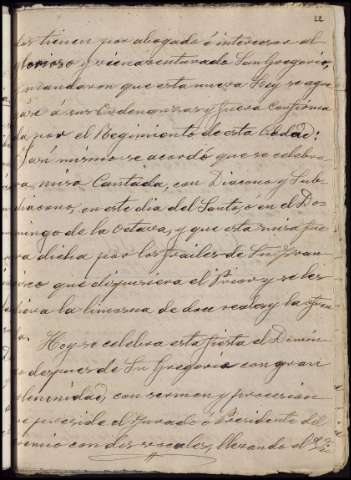 22
tes tienen por abogado é intercesor al
glorioso y bienaventurado San Gregorio,
mandaron que esta nueva Ley se agre
gára á sus Ordenanzas y fuera confirma
da por el Regimiento de esta Ciudad:
así mismo se acordó que se celebra
ra misa Cantada, con Diacono y Sub-
diacono, en este dia del Santo, o en el Do
mingo de la Octava, y que esta misa fue
ra dicha por los frailes de San Fran
cisco que dispusiera el Prior y se les
diera la limosna de doce reales y la
da.
Hoy se celebra esta fiesta el Domin
go despues de San Gregorio con gran
solemnidad, con sermon y procesion
que preside el Jurado ó Presidente del
Gremio con dos vocales, llevando el